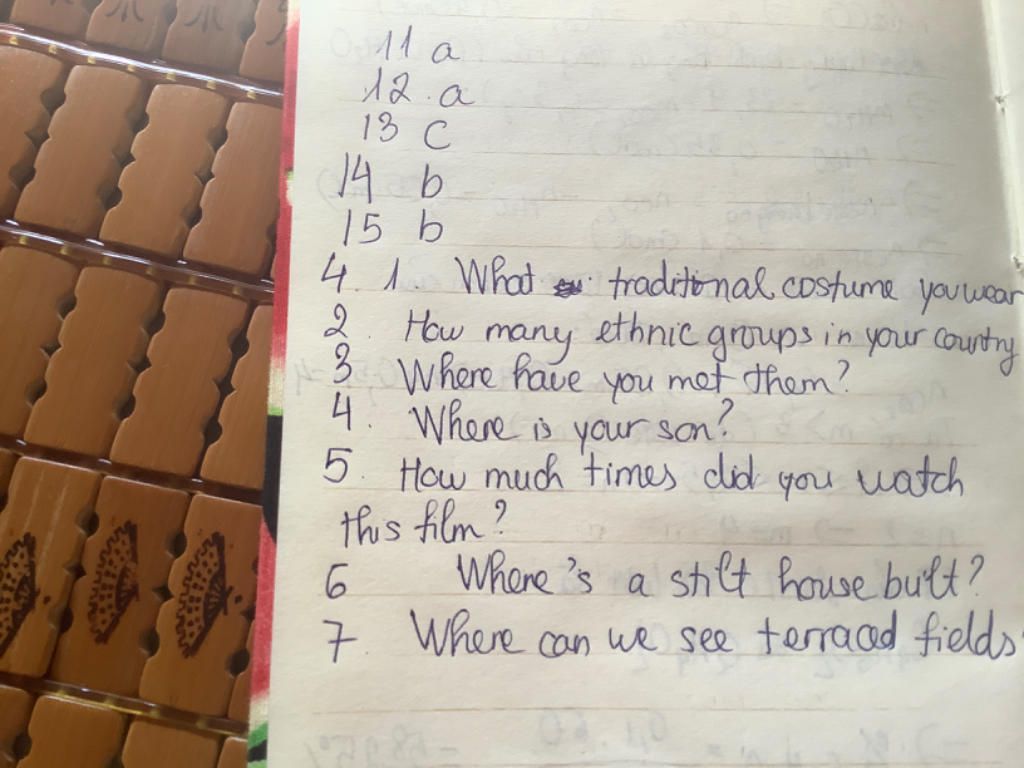 11 a
12. a
13 c
14 b
15 b
4. 1 What traditional costume you wear
2. How many ethnic groups in your country
3 Where have you met them?
4. Where is your son?
5. How much times did you watch
this film?
6 Where's a stilt house built?
7. Where can we see terraced fields